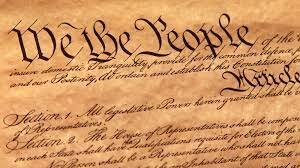 We the People of the
insure domestic Tranquility, provide for the common defence,
and our Posterity, do ordain and establish this Constitution for
Article
Section. 1. All legislative Powers herein granted shall be
of Representatives.
Section. 2. The House of Representatives shall be compose
in each State shall have Qualifications requisite for Electors of the
No Person shall be a Representative who shall not have